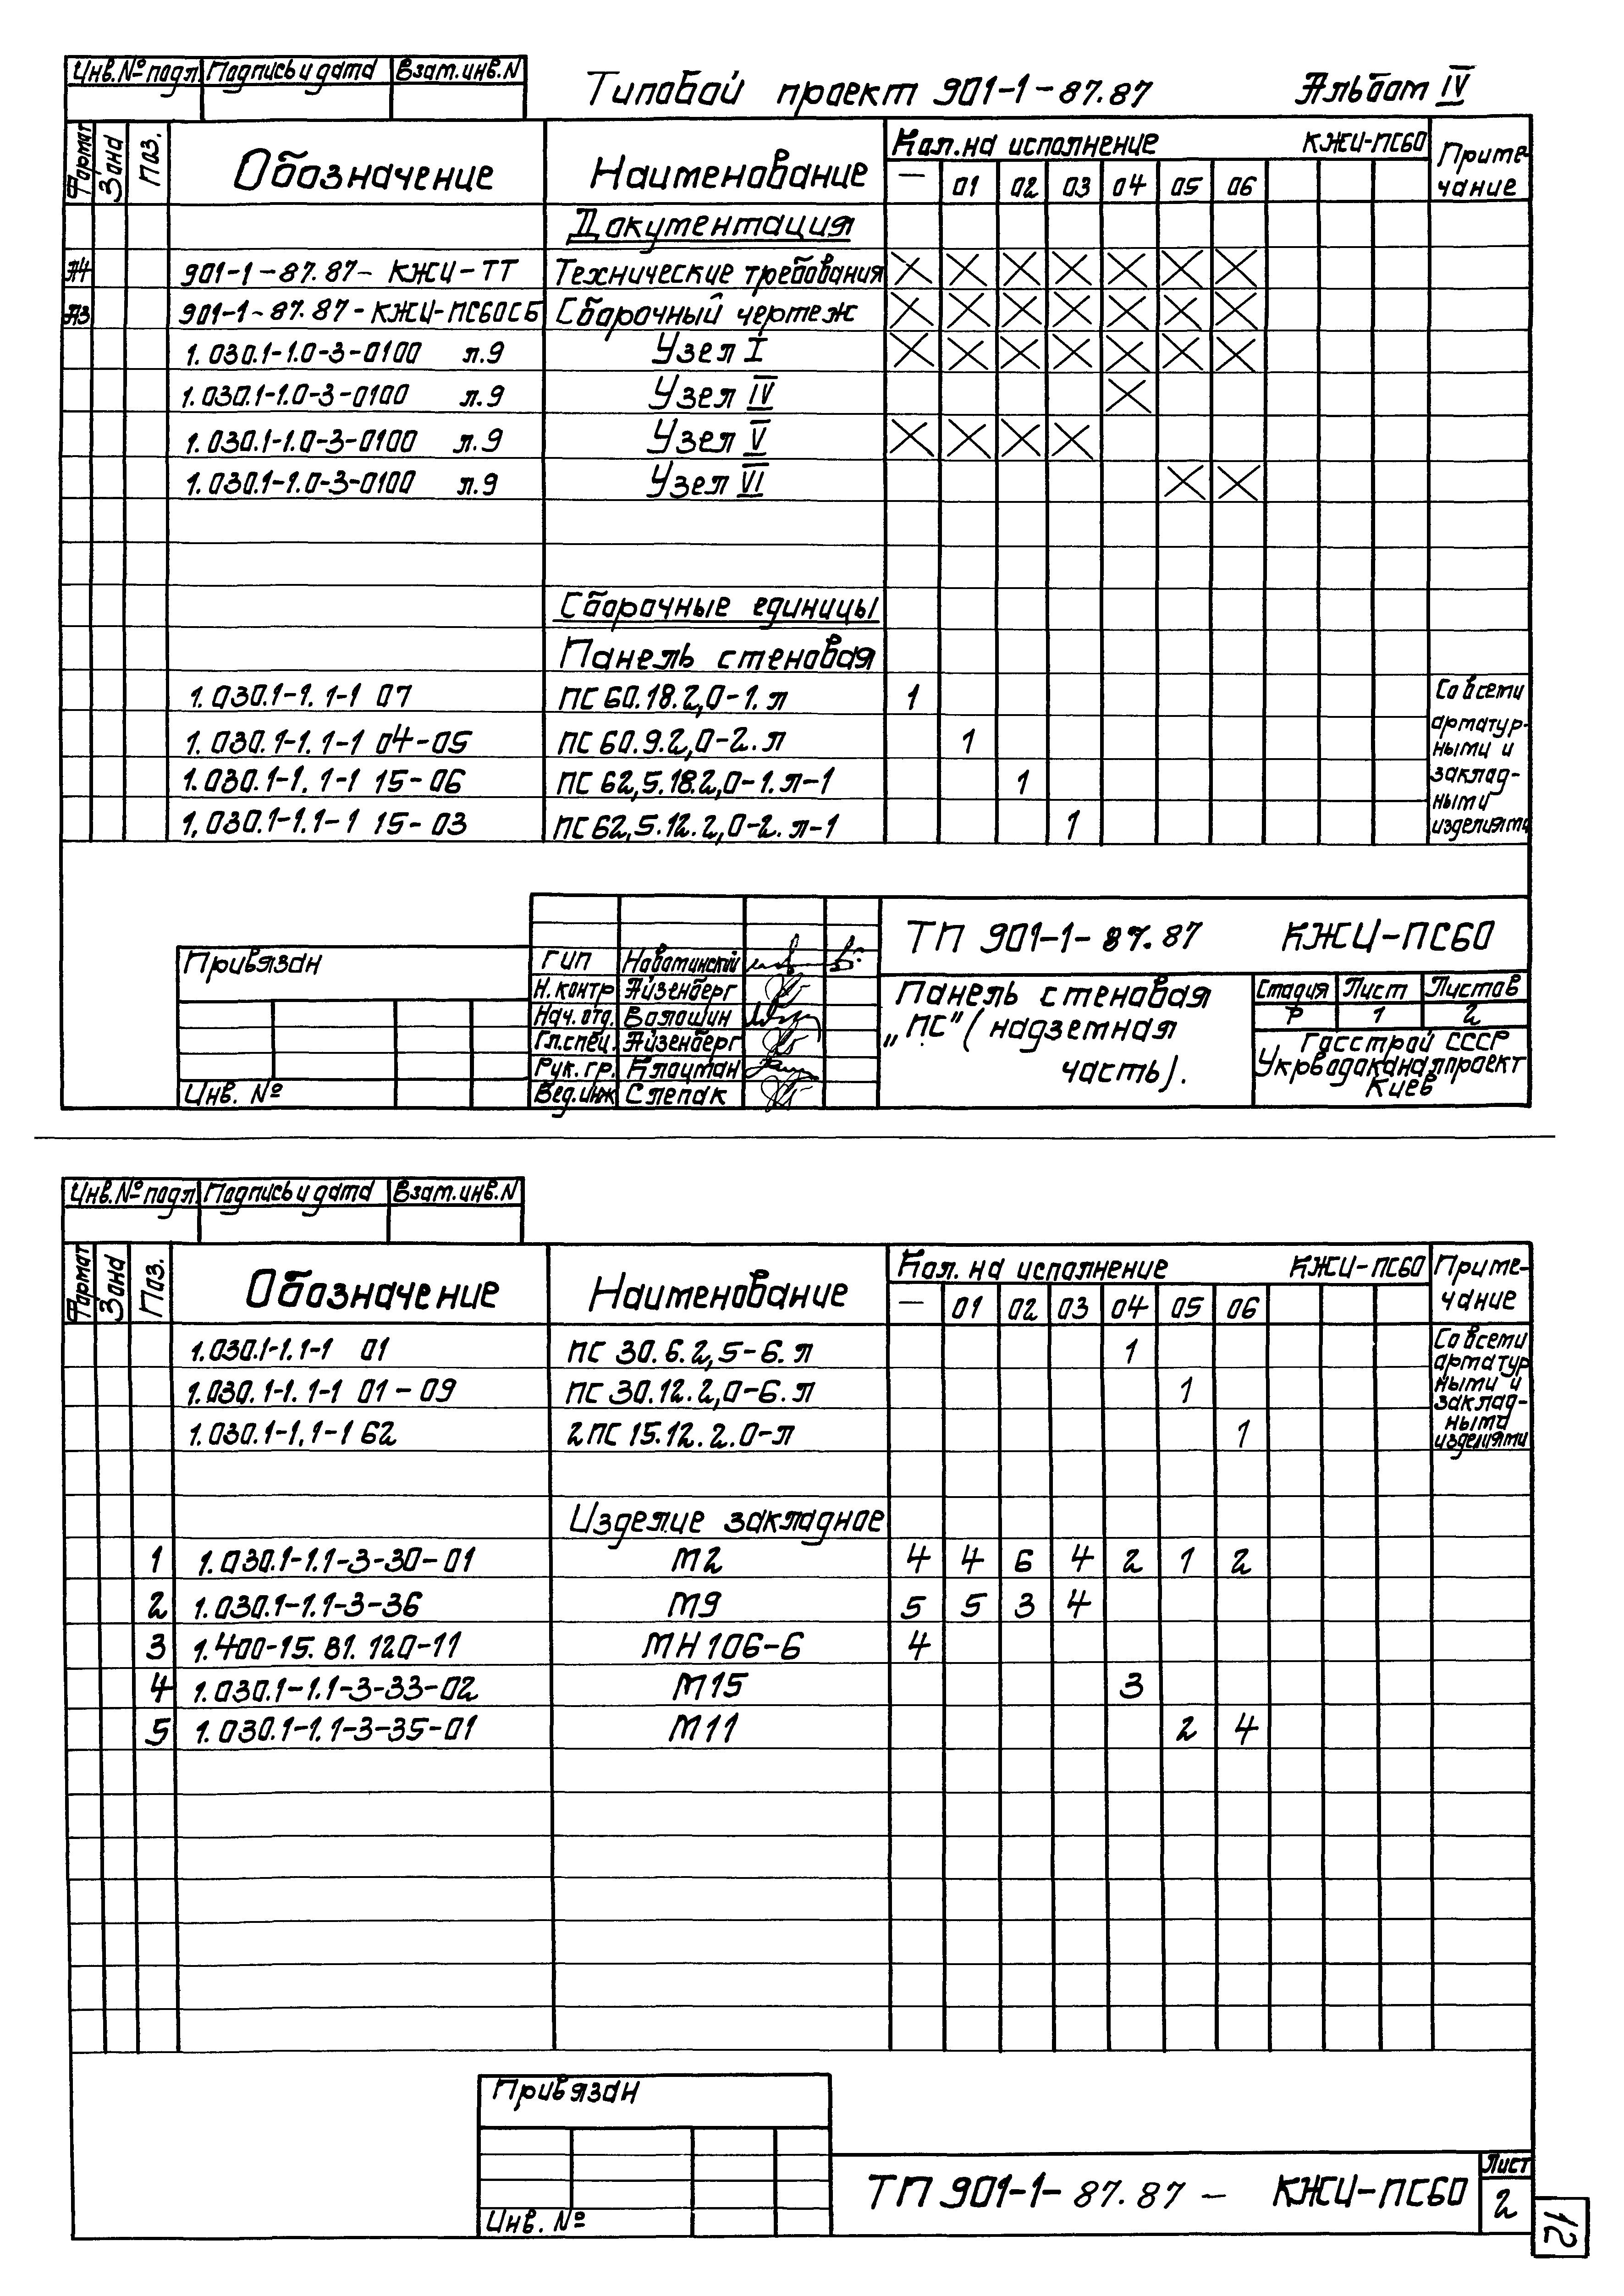 Инв.№ подл. Подпись и дата Взам.инв.N
Типовой проект 901-1-87.87 Альбом IV
Формат Зона Поз. Обозначение Наименование Кол.на исполнение КЖИ-ПС60 Приме-
чание
— 01 02 03 04 05 06
Документация
А4 901-1-87.87- КЖИ-ТТ Технические требования X X X X X X X
А3 901-1-87.87-КЖИ-ПС60СБ Сборочный чертеж X X X X X X X
1.030.1-1.0-3-0100 л.9 Узел I X X X X X X X
1.030.1-1.0-3-0100 л.9 Узел IV X
1.030.1-1.0-3-0100 л.9 Узел V X X X X
1.030.1-1.0-3-0100 л.9 Узел VI X X
Сборочные единицы
Панель стеновая
1.030.1-1.1-1 07 ПС 60.18.2,0-1.л 1 Со всеми
арматур-
1.030.1-1.1-1 04-05 ПС 60.9.2,0-2.л 1 ными и
1.030.1-1.1-1 15-06 ПС 62,5.18.2,0-1.л-1 1 заклад-
ными
1,030.1-1.1-1 15-03 ПС62,5.12.2,0-2.л-1 1 изделиями
Привязан
Инв. №
ГИП Новоминский
Н.контр Айзенберг
Нач.отд. Волошин
Гл.спец. Айзенберг
Рук.гр. Клоцман
Вед.инж Слепак
ТП 901-1-87.87 КЖИ-ПС60
Панель стеновая
„ПС" (надземная
часть).
Стадия Лист Листов
Р 1 2
Госстрой СССР
Укрводоканалпроект
Киев
Инв.№ подл. Подпись и дата Взам.инв.N
Формат Зона Поз. Обозначение Наименование Кол. на исполнение КЖИ-ПС60 Приме-
чание
— 01 02 03 04 05 06
1.030.1-1.1-1 01 ПС 30.6.2,5-6.л 1 Со всеми
арматур
1.030.1-1.1-1 01-09 ПС 30.12.2,0-6.л 1 ными и
заклад-
1.030.1-1,1-1 62 2ПС 15.12.2.0-л 1 ными
изделиями
Изделие закладное
1 1.030.1-1.1-3-30-01 М2 4 4 6 4 2 1 2
2 1.030.1-1.1-3-36 М9 5 5 3 4
3 1.400-15.В1.120-11 МН106-6 4
4 1.030.1-1.1-3-33-02 М15 3
5 1.030.1-1.1-3-35-01 М11 2 4
Привязан
Инв. №
ТП 901-1-87.87 - КЖИ-ПС60
Лист
2
12